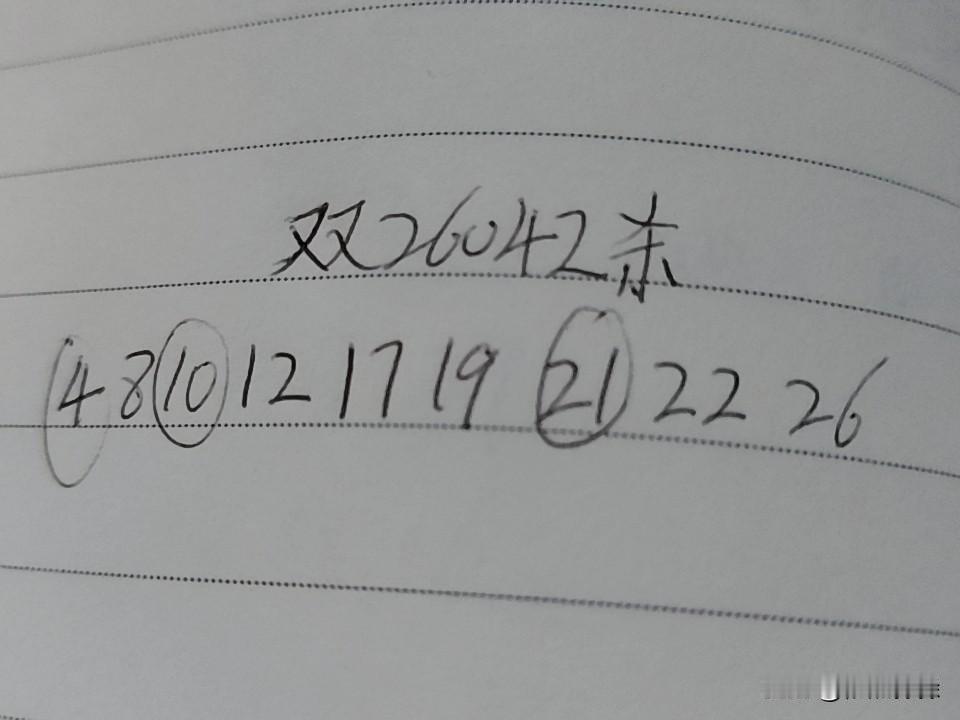 双26042杀
4 8 10 12 17 19 21 22 26